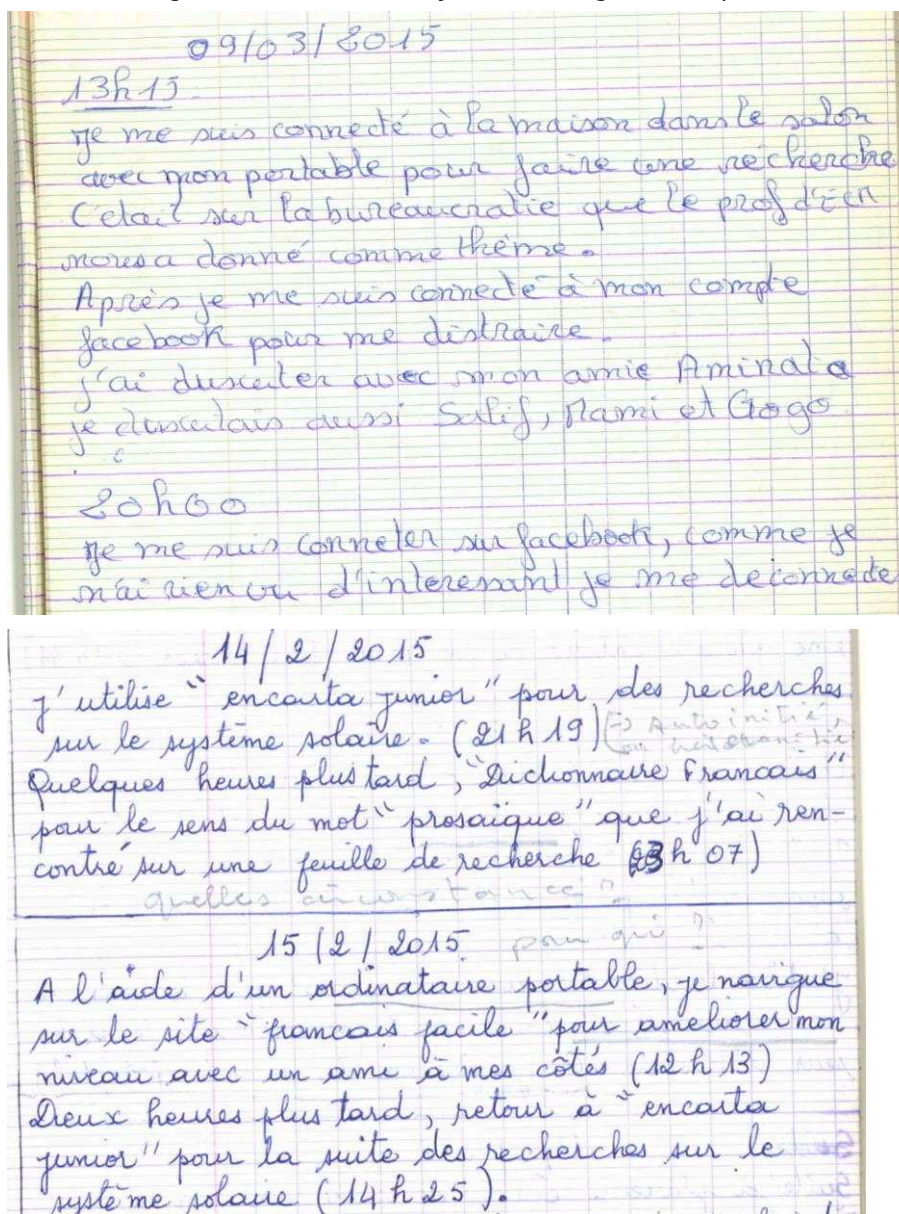 09/03/2015
13h15
je me suis connecté à la maison dans le salon
avec mon portable pour faire une recherche
C'etait sur la bureaucratie que le prof d'ECM
nous a donné comme thème.
Après je me suis connecté à mon compte
facebook pour me distraire.
j'ai duscuter avec mon amie Aminata
je duscutais aussi Salif, Mami et Gogo
20h00
je me suis conneter sur facebook, comme je
n'ai rien vu d'interessant je me deconnecte
14/2/2015
J'utilise "encarta junior" pour des recherches
sur le système solaire. (21h19) (=> Autoinitié,
ou
Quelques heures plus tard, "Dictionnaire Francais"
pour le sens du mot "prosaïque" que j'ai ren-
contré sur une feuille de recherche (23h07)
quelles circonstance ?
15/2/2015 pour qui ?
A l'aide d'un ordinataire portable, je navigue
sur le site "francais facile" pour ameliorer mon
niveau avec un ami à mes côtés (12h13)
Deux heures plus tard, retour à "encarta
junior" pour la suite des recherches sur le
système solaire (14h25).